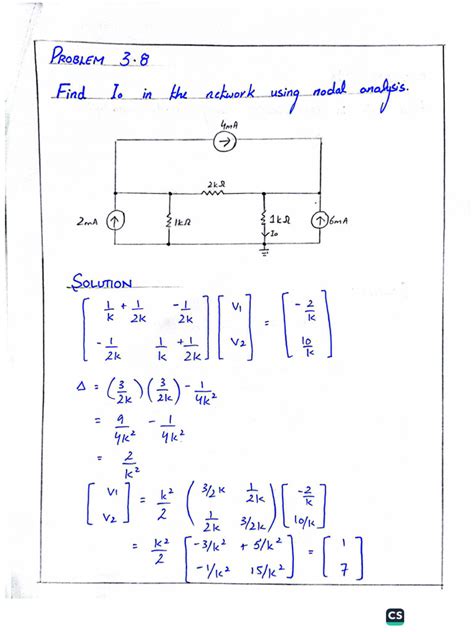 PROBLEM 3.8
Find I₀ in the network using nodal analysis.
4mA
2kΩ
2mA 1kΩ 1kΩ 6mA
I₀
SOLUTION
[ 1/k + 1/2k   -1/2k ; -1/2k   1/k + 1/2k ] [ V₁ ; V₂ ] = [ -2/k ; 10/k ]
Δ = (3/2k)(3/2k) - 1/4k²
= 9/4k² - 1/4k²
= 2/k²
[ V₁ ; V₂ ] = k²/2 ( 3/2k   1/2k ; 1/2k   3/2k ) [ -2/k ; 10/k ]
= k²/2 [ -3/k² + 5/k² ; -1/k²   15/k² ] = [ 1 ; 7 ]
CS